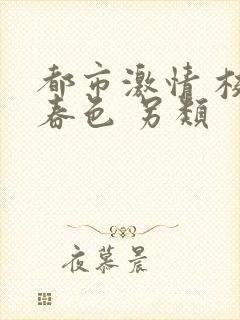 都市激情 校
春色 另类
夜慕晨